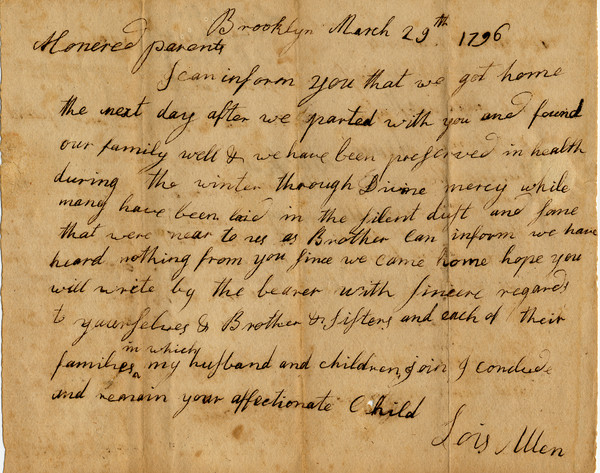 Brooklyn March 29th 1796
Honered parents
I can inform you that we got home
the next day after we parted with you and found
our family well & we have been preserved in health
during the winter through Divine mercy while
many have been laid in the silent dust and some
that were near to us as Brother Can inform we have
heard nothing from you since we came home hope you
will write by the bearer with sincere regards
to yourselves & Brother & Sisters and each of their
families in which my husband and children join I conclude
and remain your affectionate Child
Lois Allen